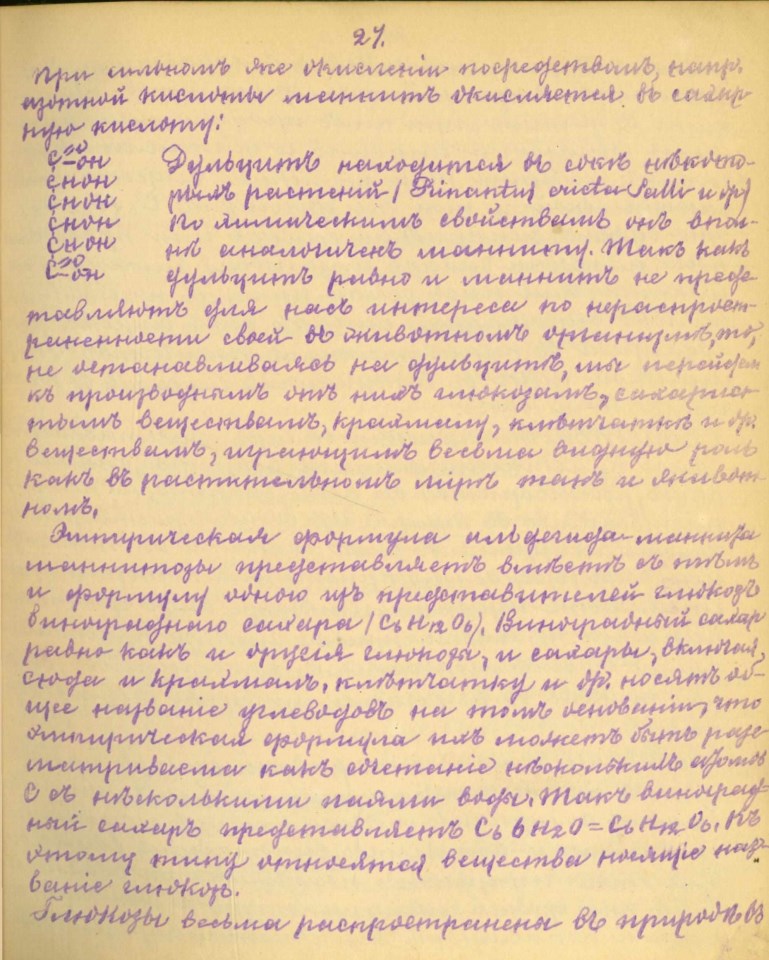 27.
При сильномъ же окисленіи посредствомъ, напр.
азотной кислоты маннитъ окисляется въ сахар-
ную кислоту:
C=O-OH Дульцитъ находится въ сокѣ нѣкото-
CHOH рыхъ растеній (Rinantus crista Galli и др)
CHOH По химическимъ свойствамъ онъ впол-
CHOH нѣ аналогиченъ манниту. Такъ какъ
CHOH дульцитъ равно и маннитъ не предс-
C=O-OH тавляютъ для насъ интереса по нераспрост-
раненности своей въ животномъ организмѣ, то,
не останавливаясь на дульцитѣ, мы перейдем
къ производнымъ отъ нихъ глюкозамъ, сахарис-
тымъ веществамъ, крахмалу, клѣтчаткѣ и др.
веществамъ, играющимъ весьма видную роль
какъ въ растительномъ мірѣ такъ и живот-
номъ.
Эмпирическая формула альдегида-маннита
маннитозы представляетъ вмѣстѣ съ тѣмъ
и формулу одного изъ представителей глюкозъ
винограднаго сахара (C6H12O6). Виноградный сахар
равно какъ и другія глюкозы, и сахары, включая
сюда и крахмалъ, клѣтчатку и др. носятъ об-
щее названіе углеводовъ на томъ основаніи, что
эмпирическая формула ихъ можетъ быть разс-
матриваема какъ сочетаніе нѣсколькихъ атомов
C съ нѣсколькими паями воды. Такъ виноград-
ный сахаръ представляетъ C6 6H2O = C6H12O6. Къ
этому типу относятся вещества носящіе наз-
ваніе глюкозъ.
Глюкозы весьма распространены въ природѣ въ